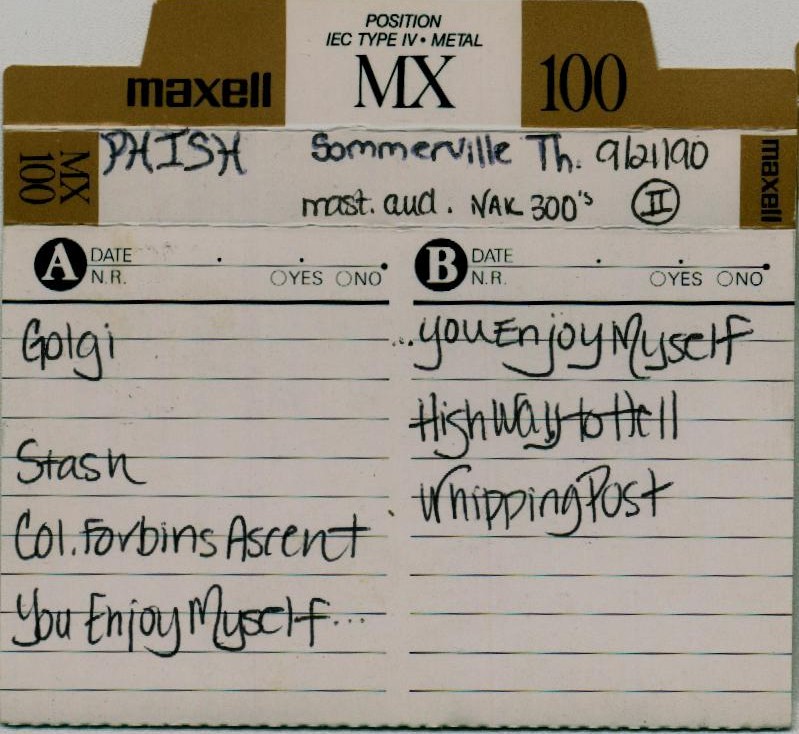 POSITION
IEC TYPE IV • METAL
maxell MX 100
MX 100
PHISH Sommerville Th. 9/21/90
mast. aud. NAK 300's II
maxell
A DATE . .
N.R. YES NO
Golgi
Stash
Col. Forbins Ascent
You Enjoy Myself...
B DATE . .
N.R. YES NO
...you Enjoy Myself
HighWay to Hell
Whipping Post